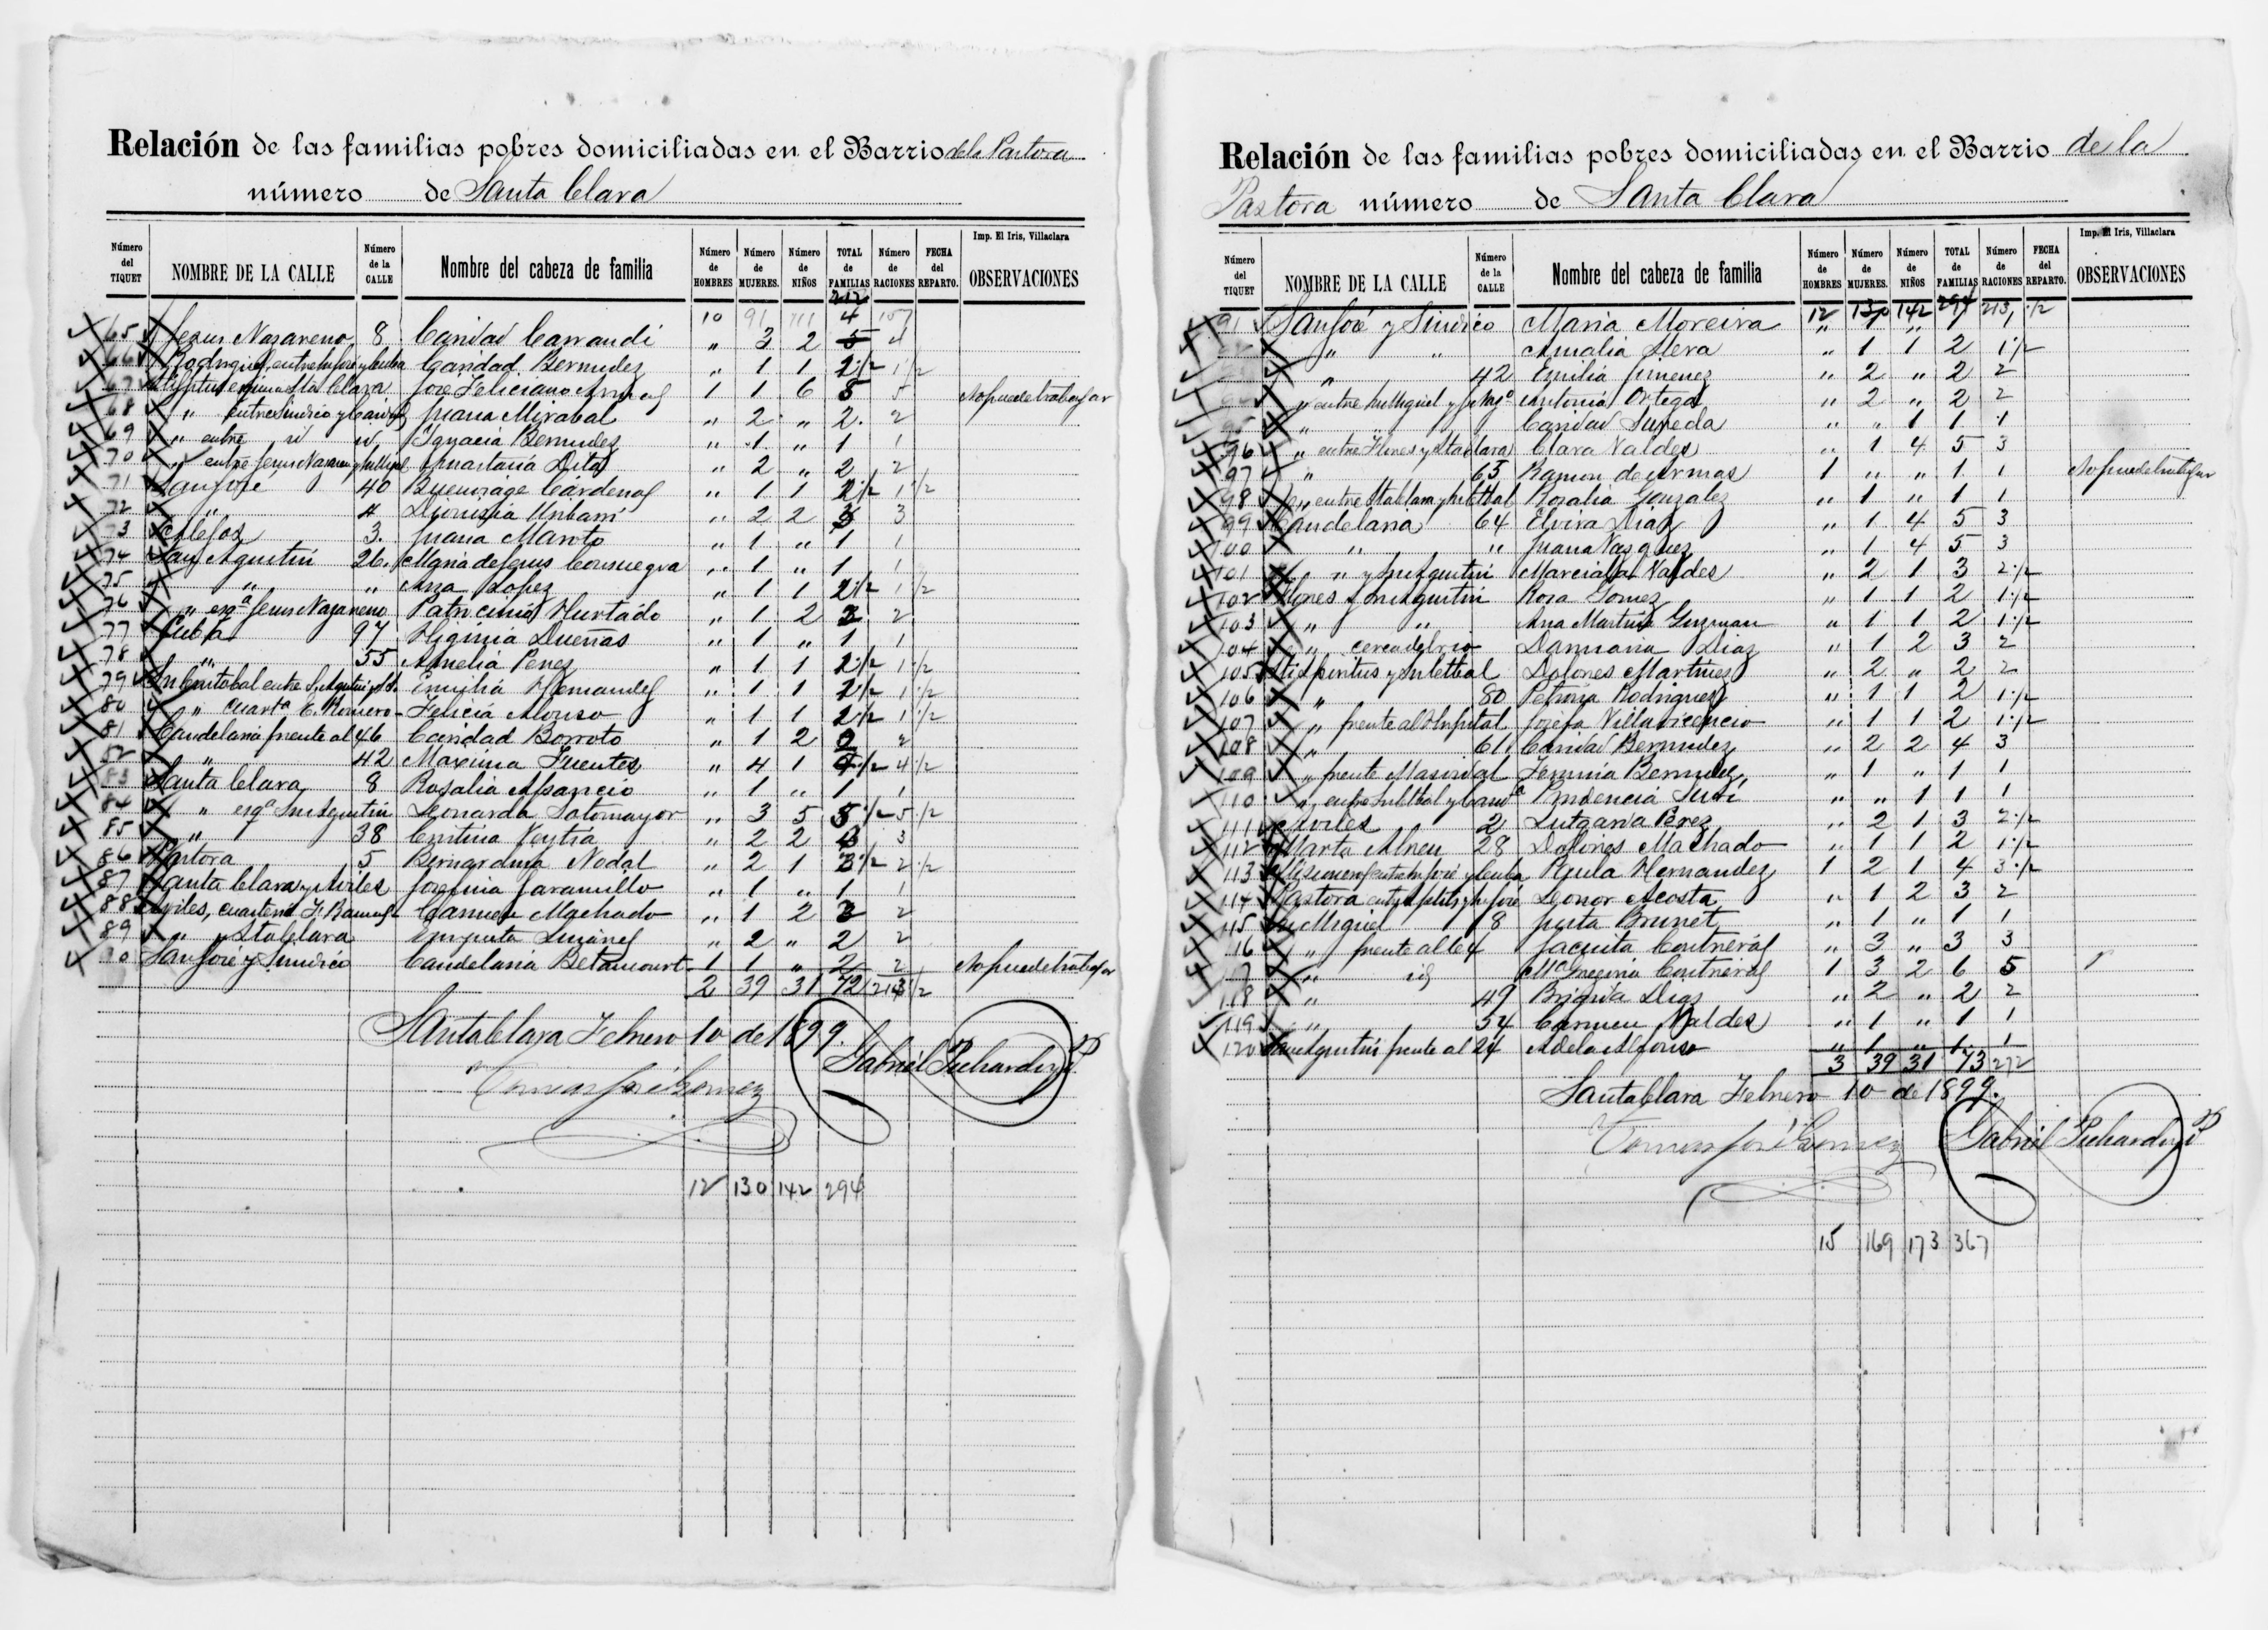 Relación de las familias pobres domiciliadas en el Barrio de la Pastora
número de Santa Clara
Imp. El Iris, Villaclara
Número del TIQUET NOMBRE DE LA CALLE Número de la CALLE Nombre del cabeza de familia Número de HOMBRES Número de MUJERES. Número de NIÑOS TOTAL de FAMILIAS Número de RACIONES FECHA del REPARTO. OBSERVACIONES
10 91 111 212
65 Jesus Nazareno 8 Caridad Carrandi " 3 2 5 4
66 Caridad Bermudez " 1 1 2 1 1/2
67 esquina Sta Clara José Feliciano 1 1 6 8 5 No puede trabajar
68 " entre Sindico y Juana Mirabal " 2 " 2 2
69 " entre id id Ignacia Bermudez " 1 " 1 1
70 " entre Jesus Nazareno y Anastacia " 2 " 2 2
71 San José 40 Buenviage Cárdenas " 1 1 2 1 1/2
72 " " Dionisia Urbani " 2 2 3
73 3. Juana Maroto " 1 " 1 1
74 San Agustin 26. Maria de Jesus Consuegra " 1 " 1 1
75 " " Ana Lopez " 1 1 2 1 1/2
76 " esqª Jesus Nazareno Patricinio Hurtado " 1 2 3 2
77 Cuba 97 Higinia Dueñas " 1 " 1 1
78 " 55 Amelia Perez " 1 1 2 1 1/2
79 Sn Cristobal entre Sn Agustin y Emilia Hernandez " 1 1 2 1 1/2
80 " cuartª C. Romero Felicia Alonso " 1 1 2 1 1/2
81 Candelaria frente al 46 Caridad Borroto " 1 2 2
82 " 42 Maxima Fuentes " 4 1 4 1/2
83 Santa Clara 8 Rosalia Asancio " 1 " 1 1
84 " esqª San Agustin Leonarda Sotomayor " 3 5 5 1/2
85 " 38 Cristina Veytia " 2 2 3
86 Pastora 5 Bernardina Nodal " 2 1 3 2 1/2
87 Santa Clara y Aviles Josefina Jaramillo " 1 " 1 1
88 Aviles, cuarteria Carmen Machado " 1 2 3 2
89 " y Sta Clara " 2 " 2 2
90 San José y Sindico Candelaria Betancourt 1 1 " 2 2 No puede trabajar
2 39 31 72
Santa Clara Febrero 10 de 1899.
Tomas José Gomez Gabriel Pichardo
12 130 142 294
Relación de las familias pobres domiciliadas en el Barrio de la
Pastora número de Santa Clara
Imp. El Iris, Villaclara
Número del TIQUET NOMBRE DE LA CALLE Número de la CALLE Nombre del cabeza de familia Número de HOMBRES Número de MUJERES. Número de NIÑOS TOTAL de FAMILIAS Número de RACIONES FECHA del REPARTO. OBSERVACIONES
12 130 142 294 213, 1/2
91 San José y Sindico Maria Moreira
" " Amalia " 1 1 2 1 1/2
" 42 Emilia Jimenez " 2 " 2 2
" entre Sn Miguel y Antonia Ortega " 2 " 2 2
95 " " Caridad " " 1 1 1
96 " entre Flores y Sta Clara Clara Valdes " 1 4 5 3
97 " 65 Ramon de Armas 1 " " 1 1 No puede trabajar
98 " entre Sta Clara y Rosalia Gonzalez " 1 " 1 1
99 Candelaria 64 Elvira Diaz " 1 4 5 3
100 " " Juana Vazquez " 1 4 5 3
101 " y Sn Agustin Marciala Valdes " 2 1 3 2 1/2
102 Flores y Sn Agustin Rosa Gomez " 1 1 2 1 1/2
103 " " Ana Martina Guzman " 1 1 2 1 1/2
104 " cerca del rio Damiana Diaz " 1 2 3 2
105 Sti Spiritus y Dolores Martinez " 2 " 2 2
106 " 80 Petrona Rodriguez " 1 1 2 1 1/2
107 " frente al Hospital Josefa Villavicencio " 1 1 2 1 1/2
108 " 61. Caridad Bermudez " 2 2 4 3
109 " frente Bermudez " 1 " 1 1
110 " entre Prudencia " " 1 1 1
111 Aviles 2 Lutgarda Perez " 2 1 3 2 1/2
112 Marta Abreu 28 Dolores Machado " 1 1 2 1 1/2
113 Misionero entre Sn José y Cuba Hernandez 1 2 1 4 3 1/2
114 Pastora entre y Sn José Leonor Acosta " 1 2 3 2
115 Sn Miguel 18 Justa Brunet " 1 " 1 1
116 " frente al 64 Jacinta Contreras " 3 " 3 3
117 " id Mª Contreras 1 3 2 6 5
118 " 49 Brigida Diaz " 2 " 2 2
119 " 54 Carmen Valdes " 1 " 1 1
120 San Agustin frente al 24 Adela Alfonso " 1 " 1 1
3 39 31 73
Santa Clara Febrero 10 de 1899.
Tomas José Gomez Gabriel Pichardo
15 169 173 367